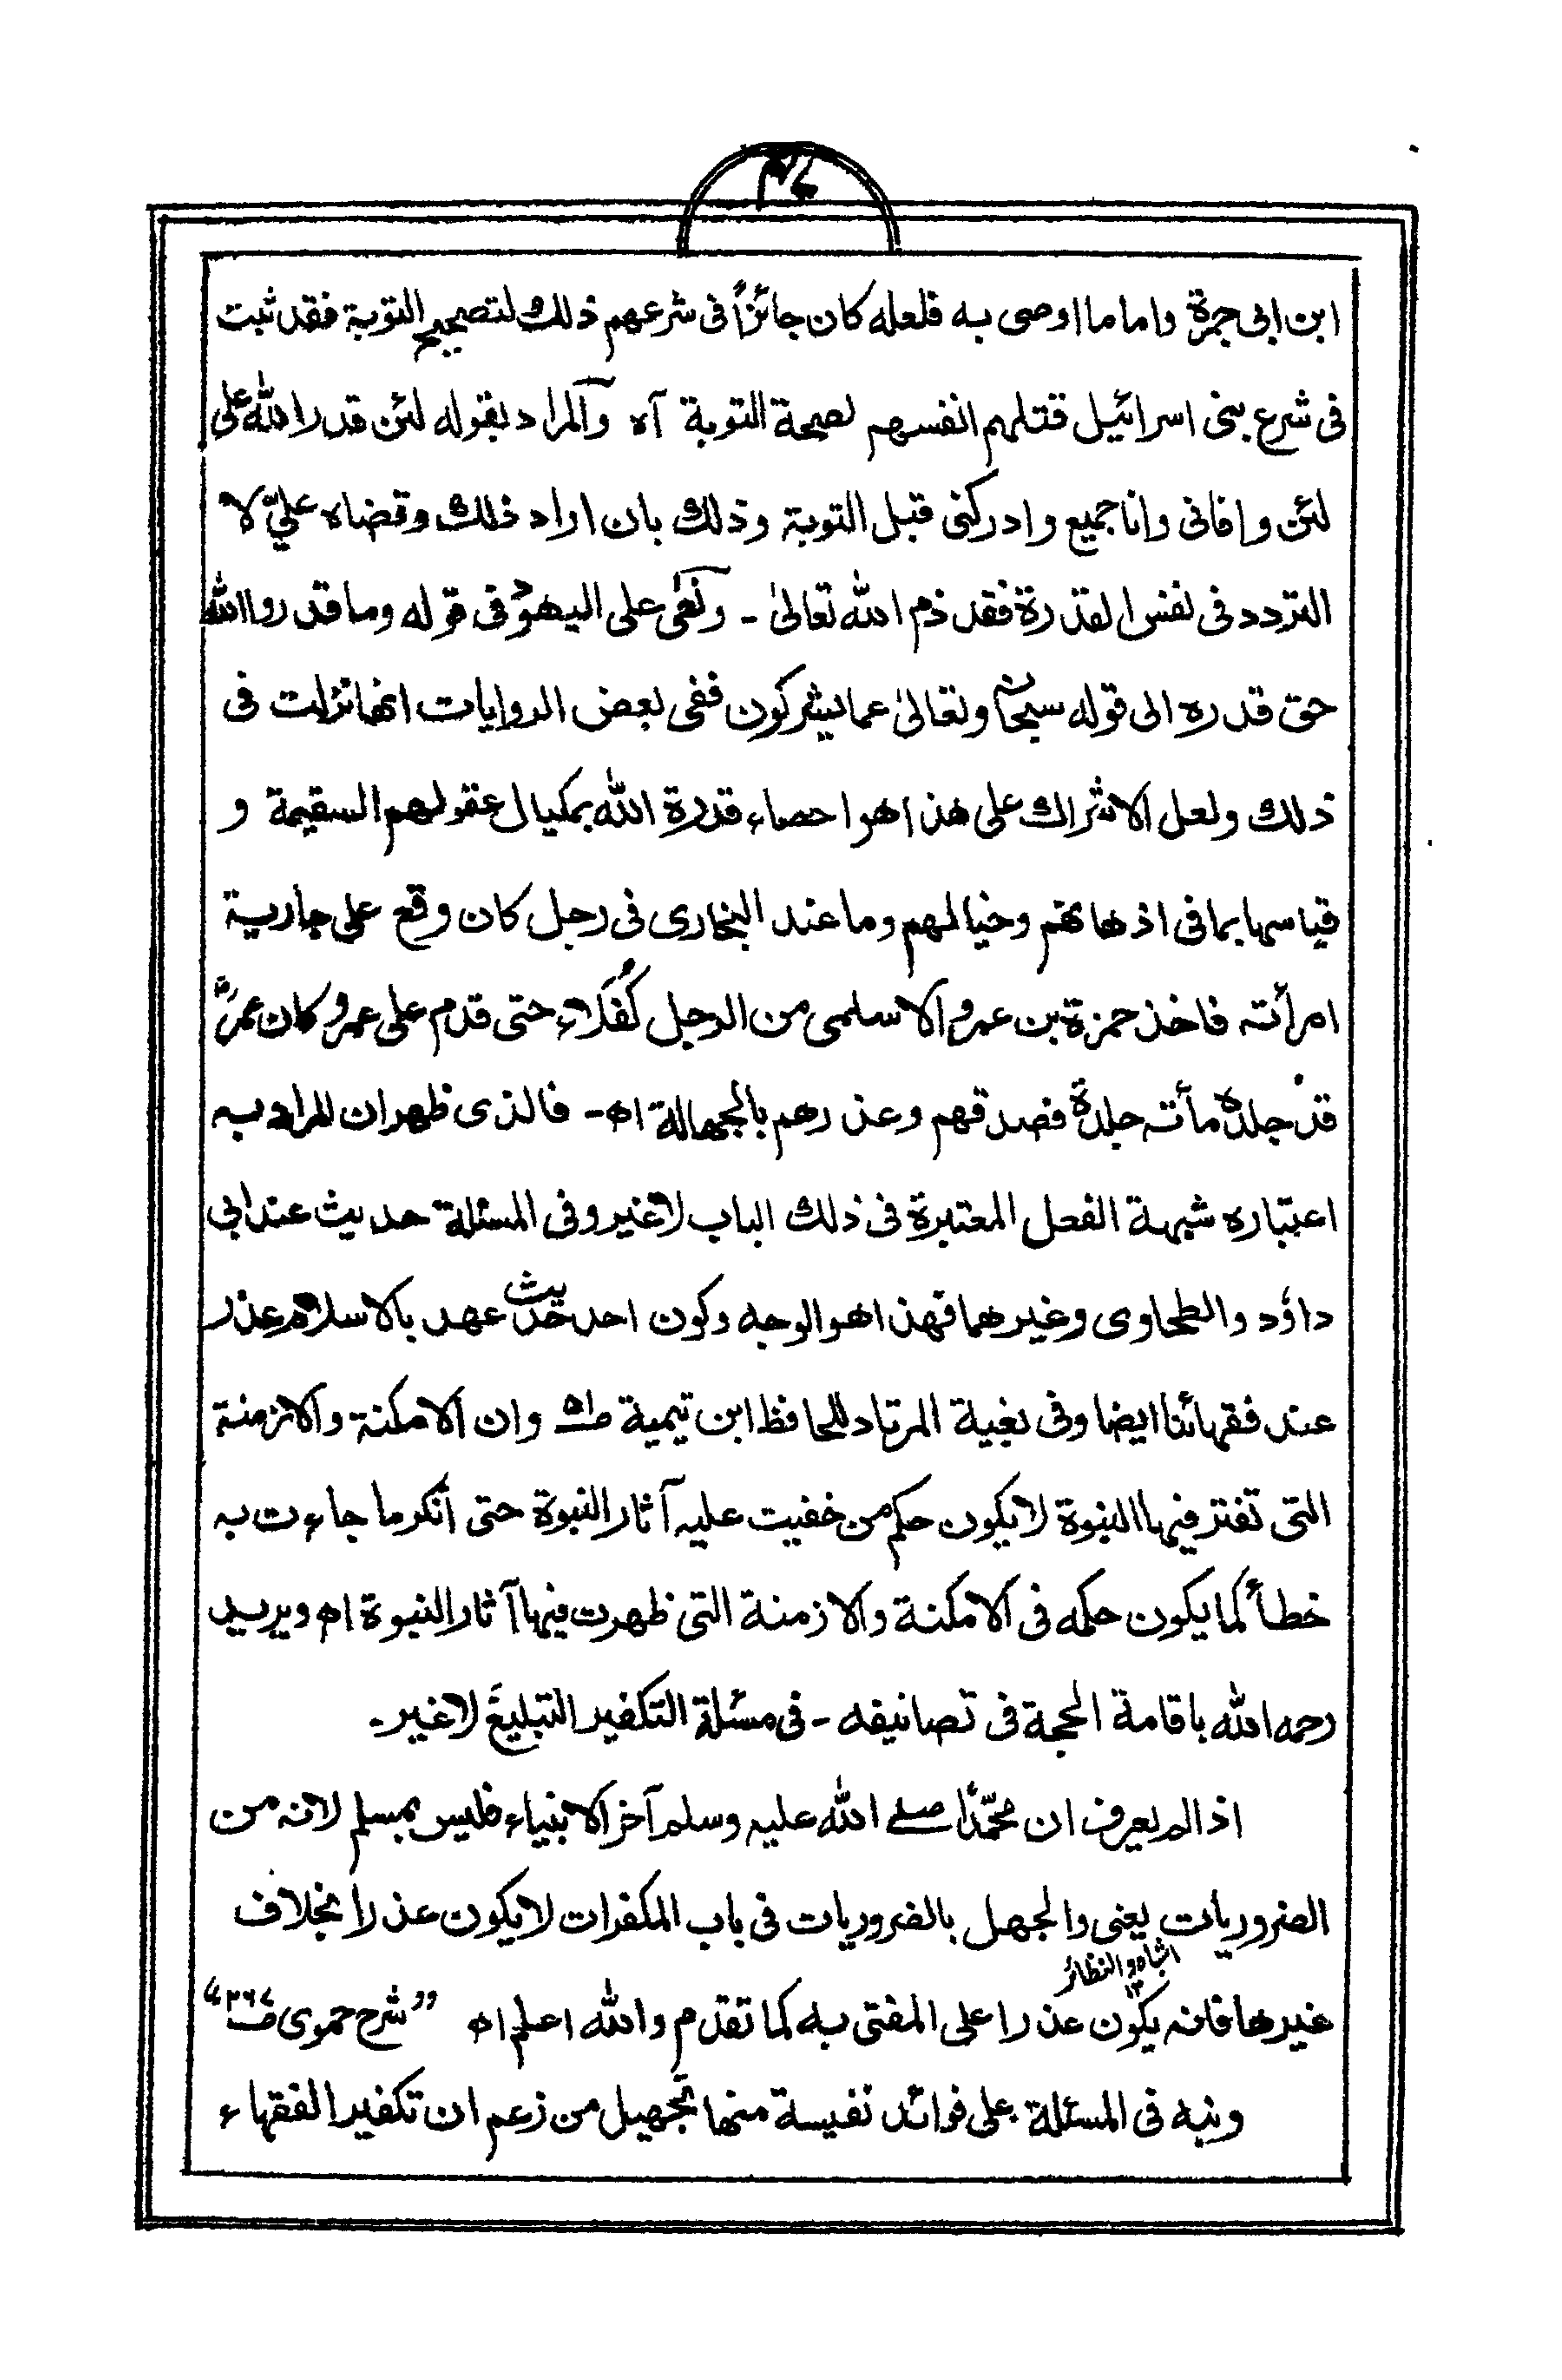 ابن ابی جمرة واما ما اوصی به فلعله کان جائزاً فی شرعهم ذلك لتصحیح التوبة فقد ثبت
فی شرع بنی اسرائیل قتلهم انفسهم لصحة التوبة آه والمراد بقوله لئن قدر الله علی
لئن وافانی وانا جمیع وادرکنی قبل التوبة وذلك بان اراد ذلك وقضاه علیّ لا
التردد فی نفس القدرة فقد ذم الله تعالیٰ - ونعیٰ علی الیهود فی قوله وما قدروا الله
حق قدره الی قوله سبحانه وتعالیٰ عما یشرکون ففی بعض الروایات انها نزلت فی
ذلك ولعل الاشراك علی هذا هو احصاء قدرة الله بمکیال عقولهم السقیمة و
قیاسها بما فی اذهانهم وخیالهم وما عند البخاری فی رجل کان وقع علی جاریة
امرأته فاخذ حمزة بن عمرو الاسلمی من الرجل کُفَلاء حتی قدم علی عمر وکان عمرؓ
قد جلده مأته جلدةً فصدقهم وعذرهم بالجهالة اه - فالذی ظهر ان المراد به
اعتباره شبهة الفعل المعتبرة فی ذلك الباب لاغیر وفی المسئلة حدیث عند ابی
داؤد والطحاوی وغیرهما فهذا هو الوجه وکون احد حدیث عهد بالاسلام عذر
عند فقهائنا ایضا وفی بغیة المرتاد للحافظ ابن تیمیة ص۵۱ وان الامکنة والازمنة
التی تفتر فیها النبوة لا یکون حکم من خفیت علیه آثار النبوة حتی أنکر ما جاءت به
خطأ کما یکون حکمه فی الامکنة والازمنة التی ظهرت فیها آثار النبوة اه ویرید
رحمه الله باقامة الحجة فی تصانیفه - فی مسئلة التکفیر التبلیغَ لاغیر -
اذا لم یعرف ان محمّدًا صلے الله علیه وسلم آخر الانبیاء فلیس بمسلم لانه من
الضروریات یعنی والجهل بالضروریات فی باب المکفرات لا یکون عذراً بخلاف
اشباه والنظائر ١٢
غیرها فانه یکون عذرا علی المفتی به کما تقدم والله اعلم اه "شرح حموی ص۲۶۷"
ونبه فی المسئلة علی فوائد نفیسة منها تجهیل من زعم ان تکفیر الفقهاء